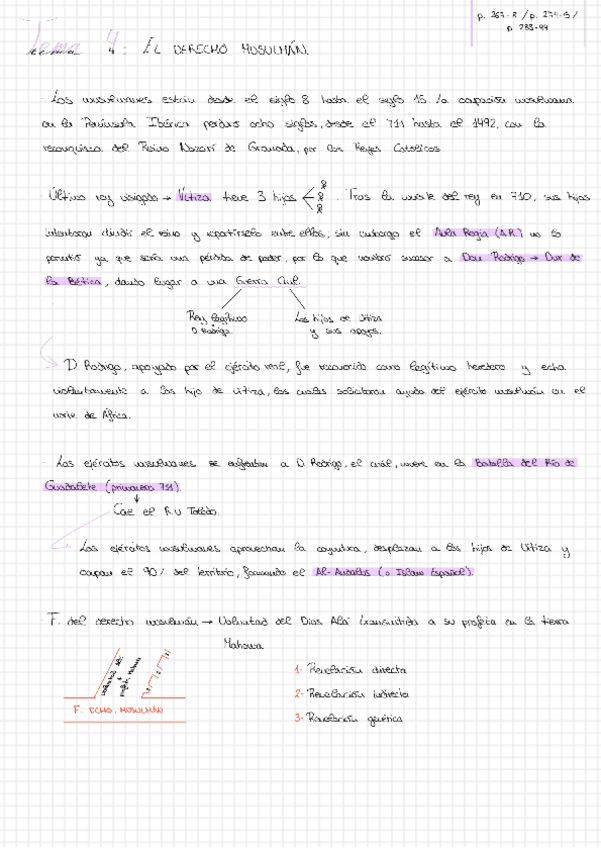 p. 267-8 / p. 274-5 /
p. 288-94
Tema 4: EL DERECHO MUSULMÁN.
Los musulmanes están desde el siglo 8 hasta el siglo 15. La ocupación musulmana
en la Península Ibérica perduró ocho siglos, desde el 711 hasta el 1492, con la
reconquista del Reino Nazarí de Granada, por los Reyes Católicos.
Último rey visigodo → Vitiza tiene 3 hijos. Tras la muerte del rey en 710, sus hijos
intentaron dividir el reino y repartírselo entre ellos, sin embargo el Aula Regia (A.R.) no lo
permitió ya que sería una pérdida de poder, por lo que nombró sucesor a Don Rodrigo → Dux de
la Bética, dando lugar a una Guerra Civil.
Rey legítimo
D. Rodrigo.
Los hijos de Vitiza
y sus apoyos.
D. Rodrigo, apoyado por el ejército real, fue reconocido como legítimo heredero y echa
violentamente a los hijo de Vitiza, los cuales solicitaron ayuda del ejército musulmán en el
norte de África.
Los ejércitos musulmanes se enfrentan a D. Rodrigo, el cuál, muere en la Batalla del Río de
Guadalete (primavera 711).
Cae el R.V. Toledo.
Los ejércitos musulmanes aprovechan la coyuntura, desplazan a los hijos de Vitiza y
ocupan el 90% del territorio, formando el Al-Andalus (o Islam Español).
F. del derecho musulmán → Voluntad del Dios Alá transmitida a su profeta en la tierra
Mahoma
F. DCHO. MUSULMÁN
1- Revelación directa
2- Revelación indirecta
3- Revelación genérica